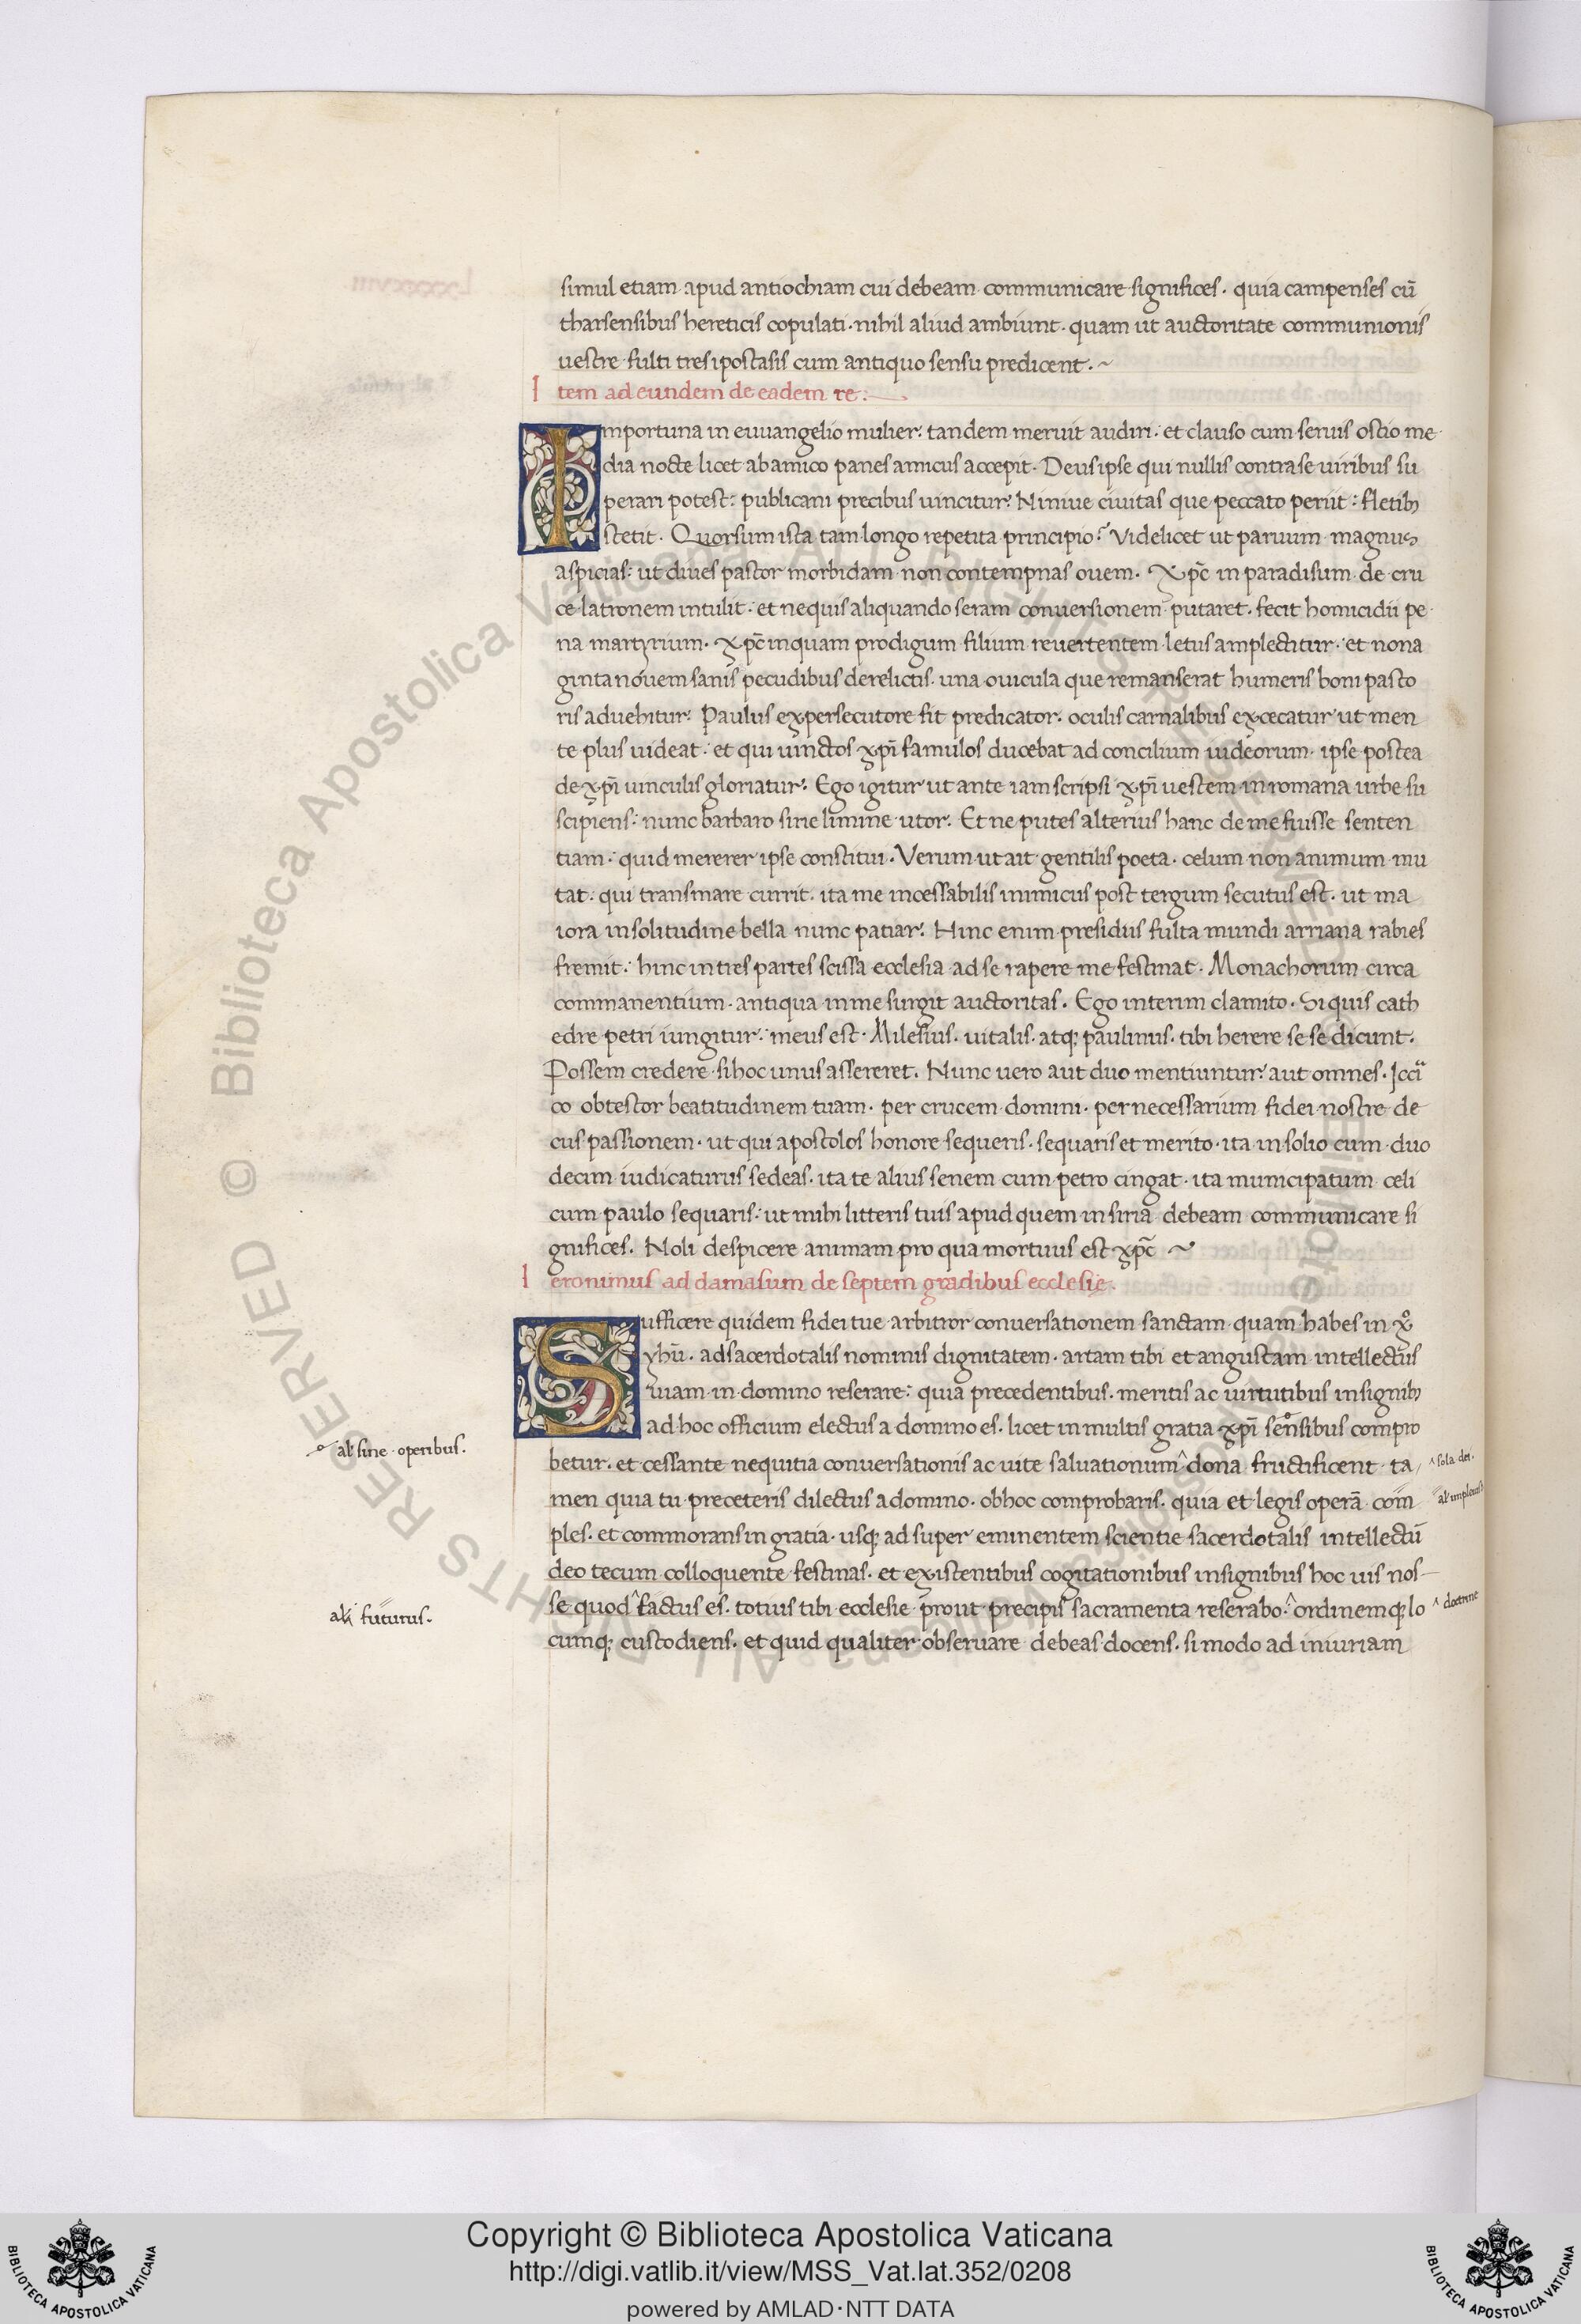 simul etiam apud antiochiam cui debeam communicare significes. quia campenses cū
tharsensibus hereticis copulati. nihil aliud ambiunt. quam ut auctoritate communionis
uestre fulti tres ipostasis cum antiquo sensu predicent. ~
Item ad eundem de eadem re:
Importuna in euuangelio mulier: tandem meruit audiri: et clauso cum seruis ostio me
dia nocte licet ab amico panes amicus accepit. Deus ipse qui nullis contra se uiribus su
perari potest: publicani precibus uincitur: Niniue ciuitas que peccato periit: fletibȝ
stetit. Quorsum ista tam longo repetita principio? Videlicet ut paruum magnus
aspicias: ut diues pastor morbidam non contempnas ouem. Xp̄c in paradisum de cru
ce latronem intulit: et nequis aliquando seram conuersionem putaret. fecit homicidii pe
na martyrium. Xp̄c inquam prodigum filium reuertentem letus amplectitur: et nona
ginta nouem sanis pecudibus derelictis. una ouicula que remanserat humeris boni pasto
ris aduehitur: Paulus ex persecutore fit predicator. oculis carnalibus excecatur ut men
te plus uideat: et qui uinctos xp̄i famulos ducebat ad concilium iudeorum. ipse postea
de xp̄i uinculis gloriatur: Ego igitur ut ante iam scripsi xp̄i uestem in romana urbe su
scipiens: nunc barbaro sirie limine utor. Et ne putes alterius hanc de me fuisse senten
tiam: quid mererer ipse constitui. Verum ut ait gentilis poeta. celum non animum mu
tat: qui trans mare currit. ita me incessabilis inimicus post tergum secutus est. ut ma
iora in solitudine bella nunc patiar: Hinc enim presidiis fulta mundi arriana rabies
fremit: hinc in tres partes scissa ecclesia ad se rapere me festinat. Monachorum circa
commanentium. antiqua in me surgit auctoritas. Ego interim clamito. Si quis cath
edre petri iungitur: meus est. Milesius. uitalis. atq; paulinus. tibi herere se se dicunt.
Possem credere si hoc unus assereret. Nunc uero aut duo mentiuntur: aut omnes. Iccir
co obtestor beatitudinem tuam. per crucem domini. per necessarium fidei nostre de
cus passionem. ut qui apostolos honore sequeris. sequaris et merito. ita in solio cum duo
decim iudicaturus sedeas. ita te alius senem cum petro cingat. ita municipatum celi
cum paulo sequaris: ut mihi litteris tuis apud quem in siria debeam communicare si
gnifices. Noli despicere animam pro qua mortuus est xp̄c ~
Ieronimus ad damasum de septem gradibus ecclesię.
Sufficere quidem fidei tue arbitror conuersationem sanctam quam habes in xo
yhū. ad sacerdotalis nominis dignitatem. artam tibi et angustam intellectus
uiam in domino reserare: quia precedentibus. meritis ac uirtutibus insignibȝ
ad hoc officium electus a domino es. licet in multis gratia xp̄i senosibus compro
betur. et cessante nequitia conuersationis ac uite saluationum^ dona fructificent ta
men quia tu preceteris dilectus a domino. ob hoc comprobaris. quia et legis operā com
ples. et commorans in gratia. usq; ad super eminentem scientie sacerdotalis intellectū
deo tecum colloquente festinas. et existentibus cogitationibus insignibus hoc uis nos
se quod factus es. totius tibi ecclesie prout precipis sacramenta reserabo:^ ordinemq; lo
cumq; custodiens. et quid qualiter obseruare debeas docens. si modo ad iniuriam
al' sine operibus.
^ sola dei.
ali futurus.
^ doctrine
Copyright © Biblioteca Apostolica Vaticana
http://digi.vatlib.it/view/MSS_Vat.lat.352/0208
powered by AMLAD·NTT DATA
BIBLIOTECA APOSTOLICA VATICANA
BIBLIOTECA APOSTOLICA VATICANA
© Biblioteca Apostolica Vaticana ALL RIGHTS RESERVED